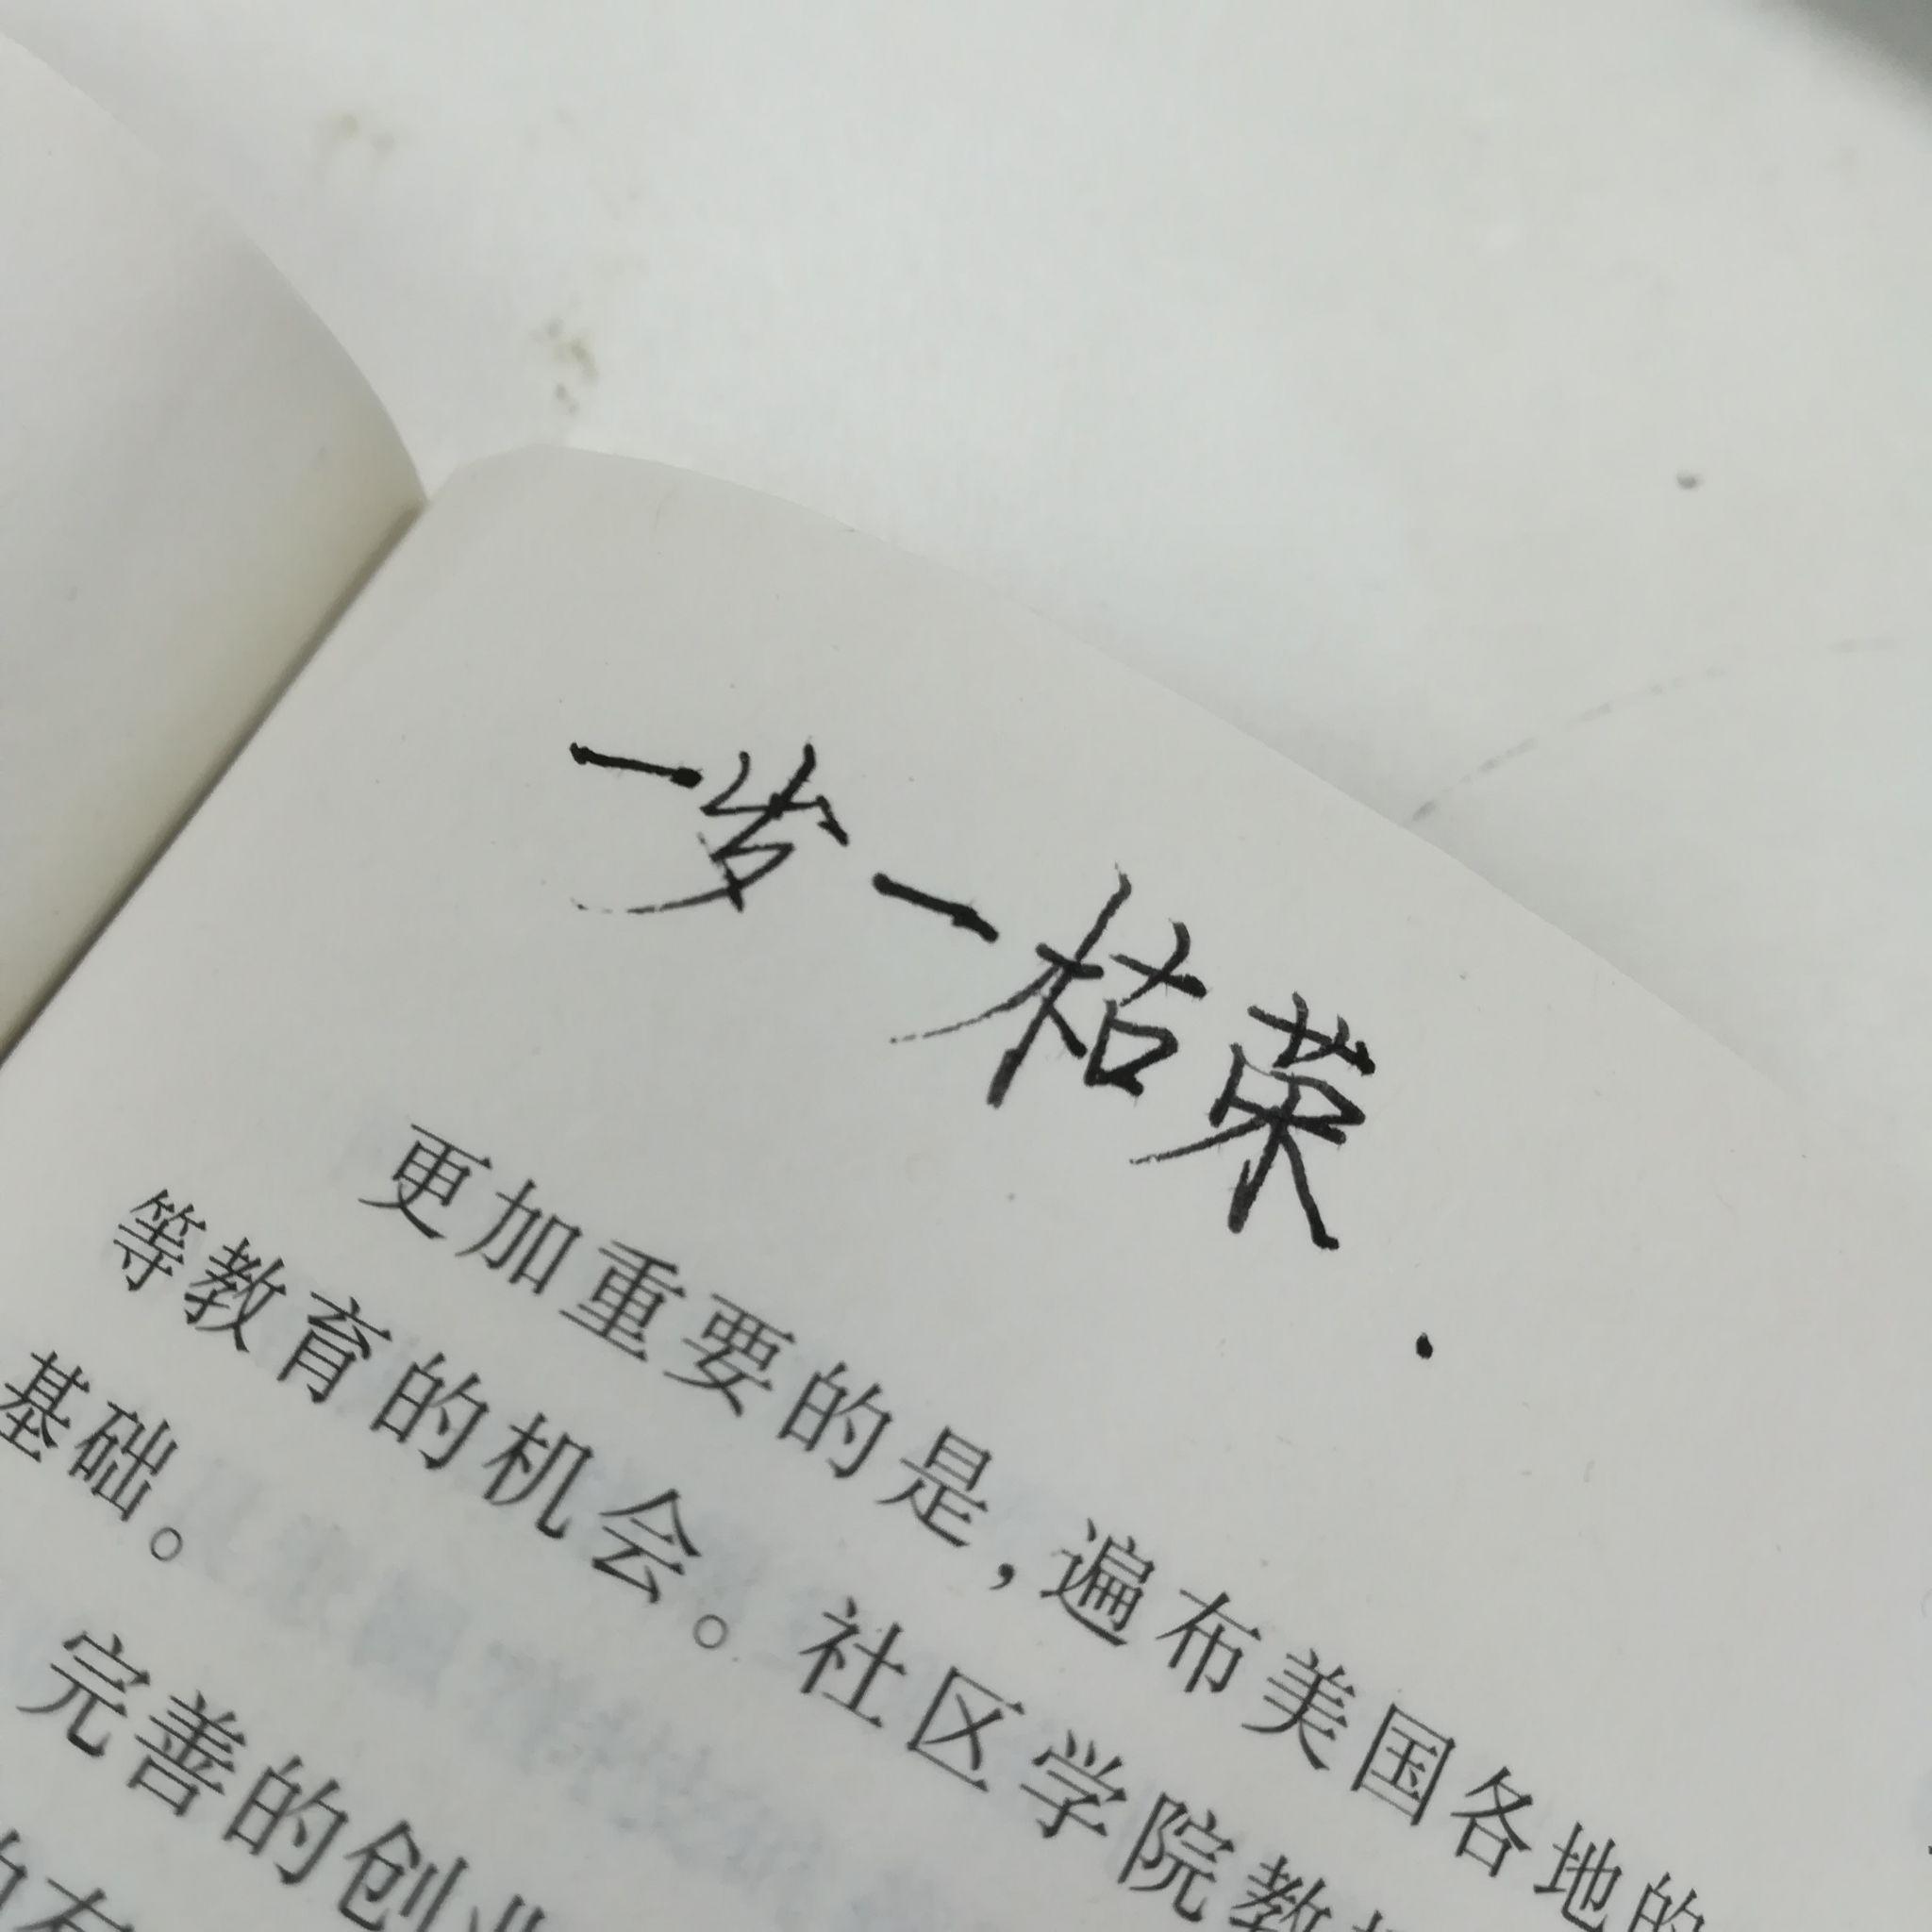 一岁一枯荣.
更加重要的是，遍布美国各地的
等教育的机会。社区学院教
基础。
完善的创业
有